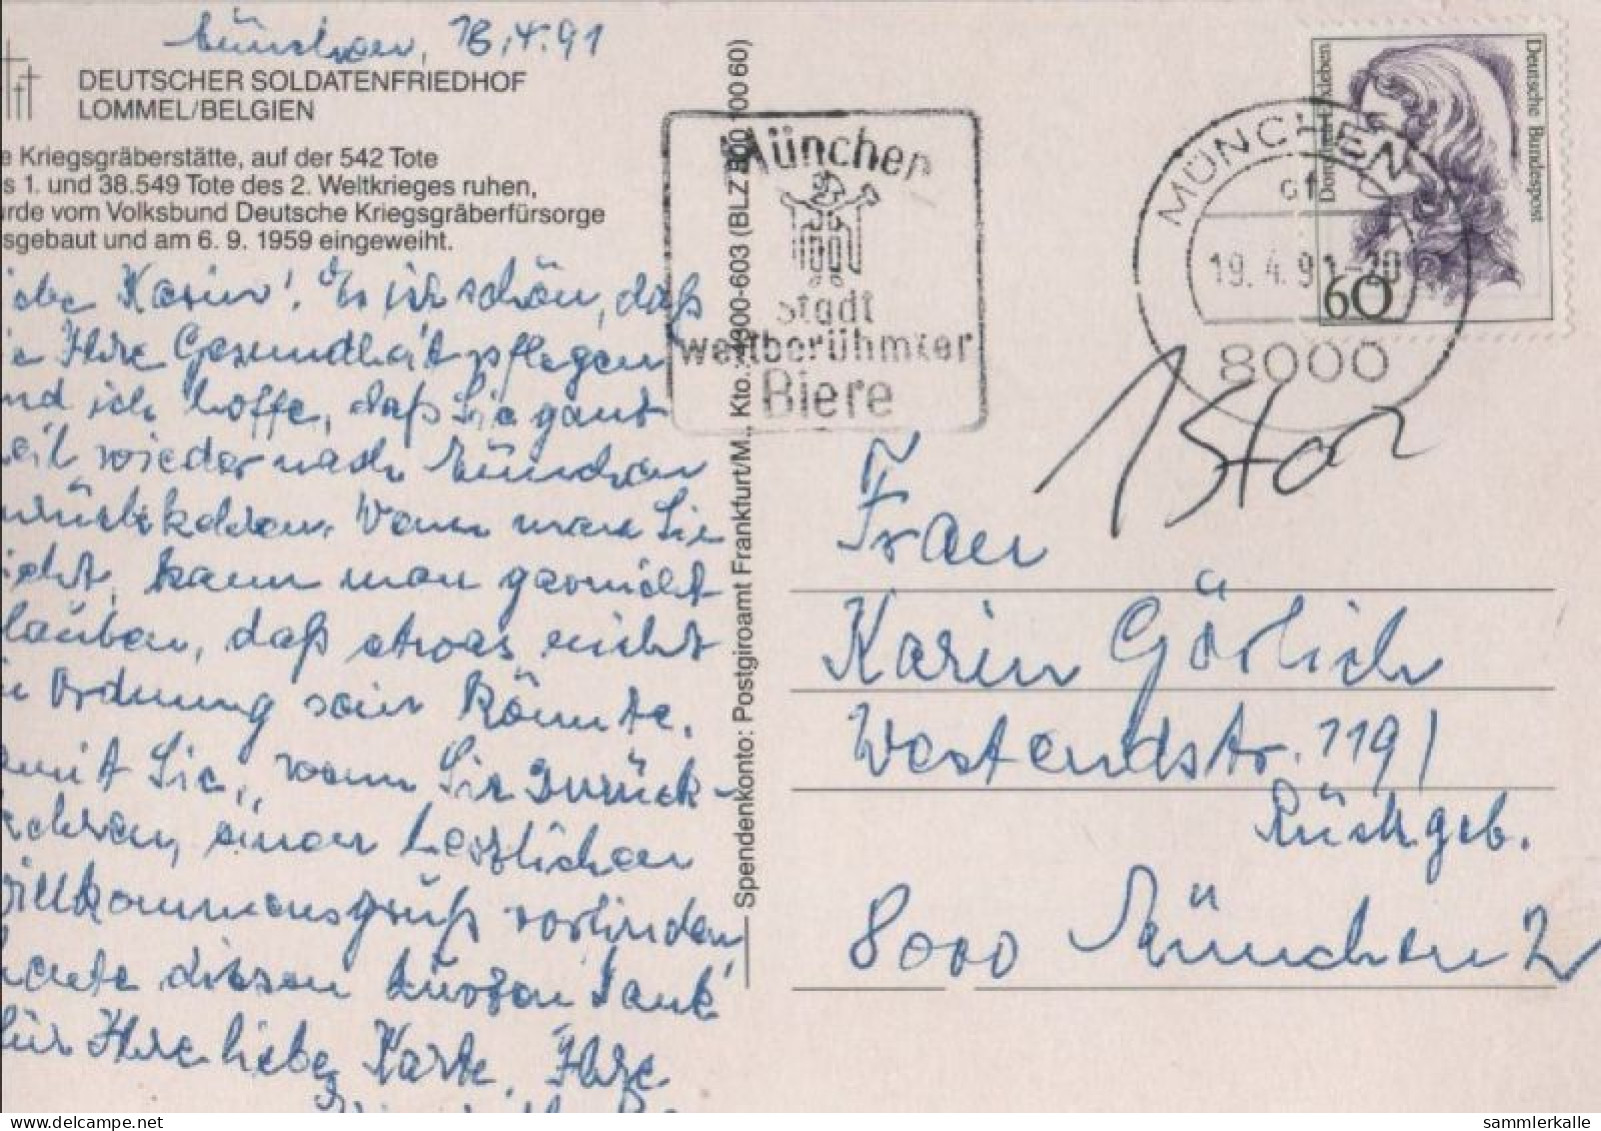 München, 18.4.91
DEUTSCHER SOLDATENFRIEDHOF
LOMMEL/BELGIEN
e Kriegsgräberstätte, auf der 542 Tote
s 1. und 38.549 Tote des 2. Weltkrieges ruhen,
urde vom Volksbund Deutsche Kriegsgräberfürsorge
sgebaut und am 6. 9. 1959 eingeweiht.
iebe Karin! Es ist schön, daß
ie Ihre Gesundheit pflegen
nd ich hoffe, daß Sie ganz
wieder nach München
zurückkehren. Wenn man Sie
ieht, kann man garnicht
lauben, daß etwas nicht
in Ordnung sein könnte.
amit Sie, wenn Sie zurück-
kehren, einen herzlichen
willkommensgruß vorfinden,
heute diesen kurzen Dank
für Ihre liebe Karte. Ihre
Spendenkonto: Postgiroamt Frankfurt/M., Kto.: 4300-603 (BLZ 500 100 60)
München
Stadt
weltberühmter
Biere
MÜNCHEN
19.4.91-20
8000
Deutsche Bundespost
60
Frau
Karin Görlich
Westendstr. 119/
Rückgeb.
8000 München 2
sammlerkalle